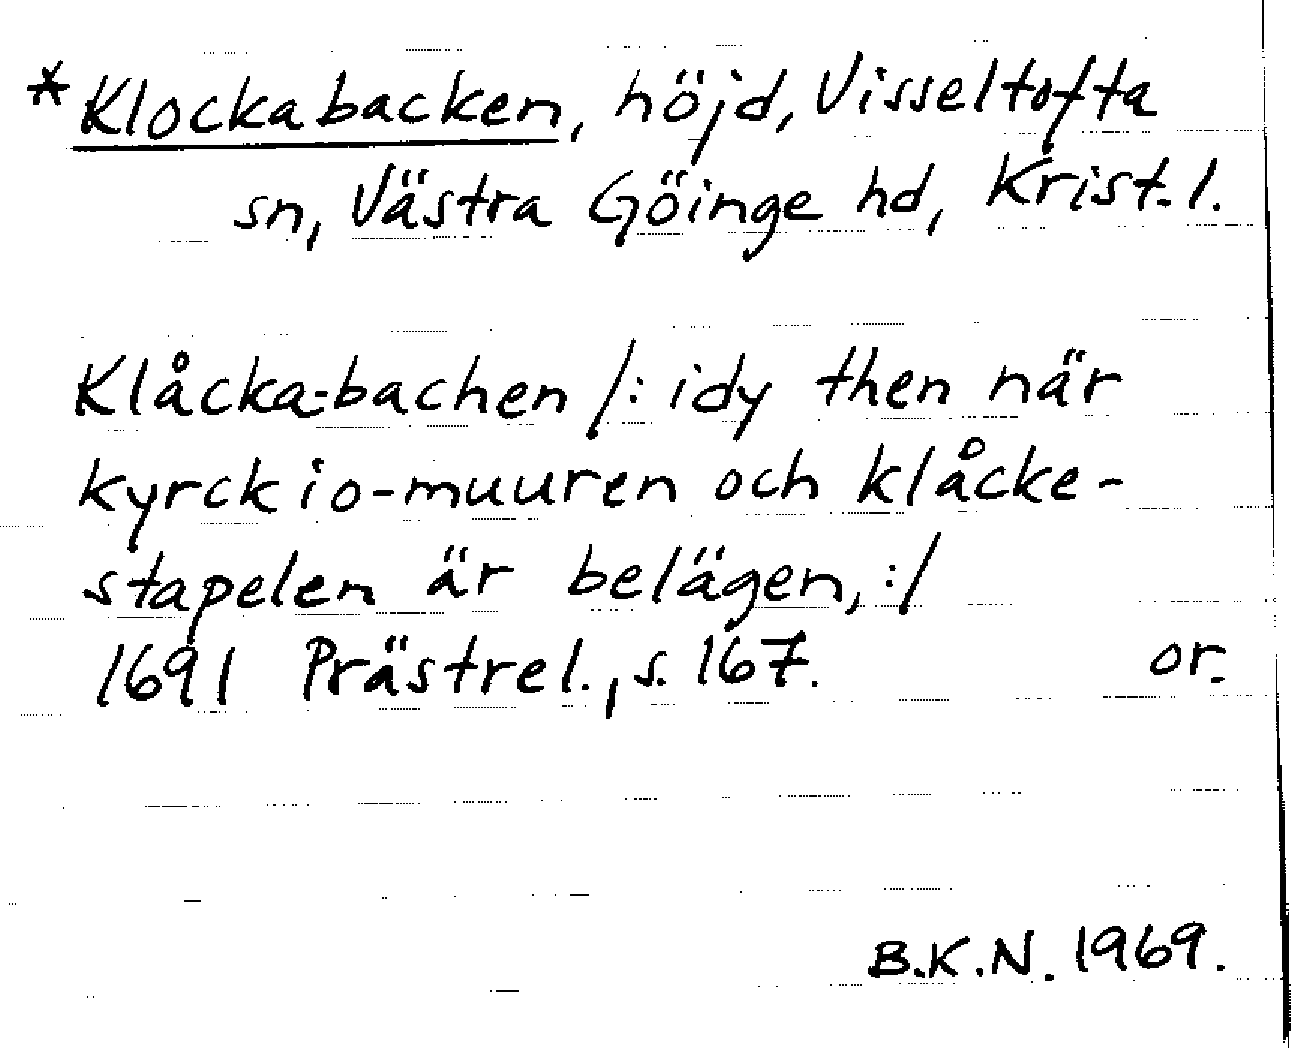 *Klockabacken, höjd, Visseltofta
sn, Västra Göinge hd, Krist.l.
Klåcka-bachen /: idy then när
kyrckio-muuren och klåcke-
stapelen är belägen, :/
1691 Prästrel., s. 167. or.
B.K.N. 1969.